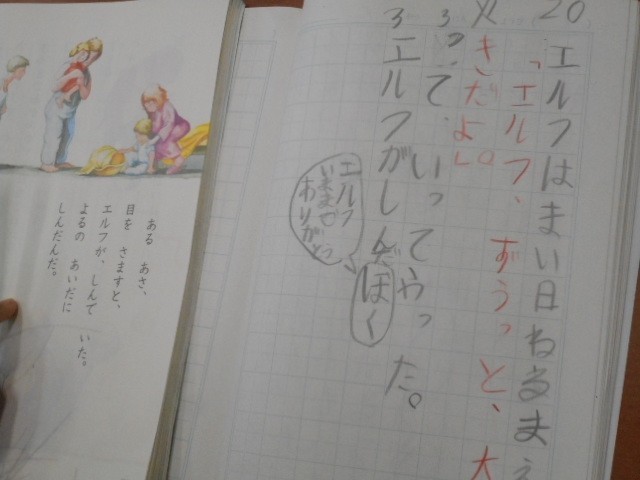 20
エルフはまい日ねるまえ
「エルフ、ずうっと、大
きだよ」。
って、いってやった。
エルフがしんだ
ぼく
エルフ
いままで
ありがとう
ある あさ、
目を さますと、
エルフが、しんで いた。
よるの あいだに
しんだんだ。